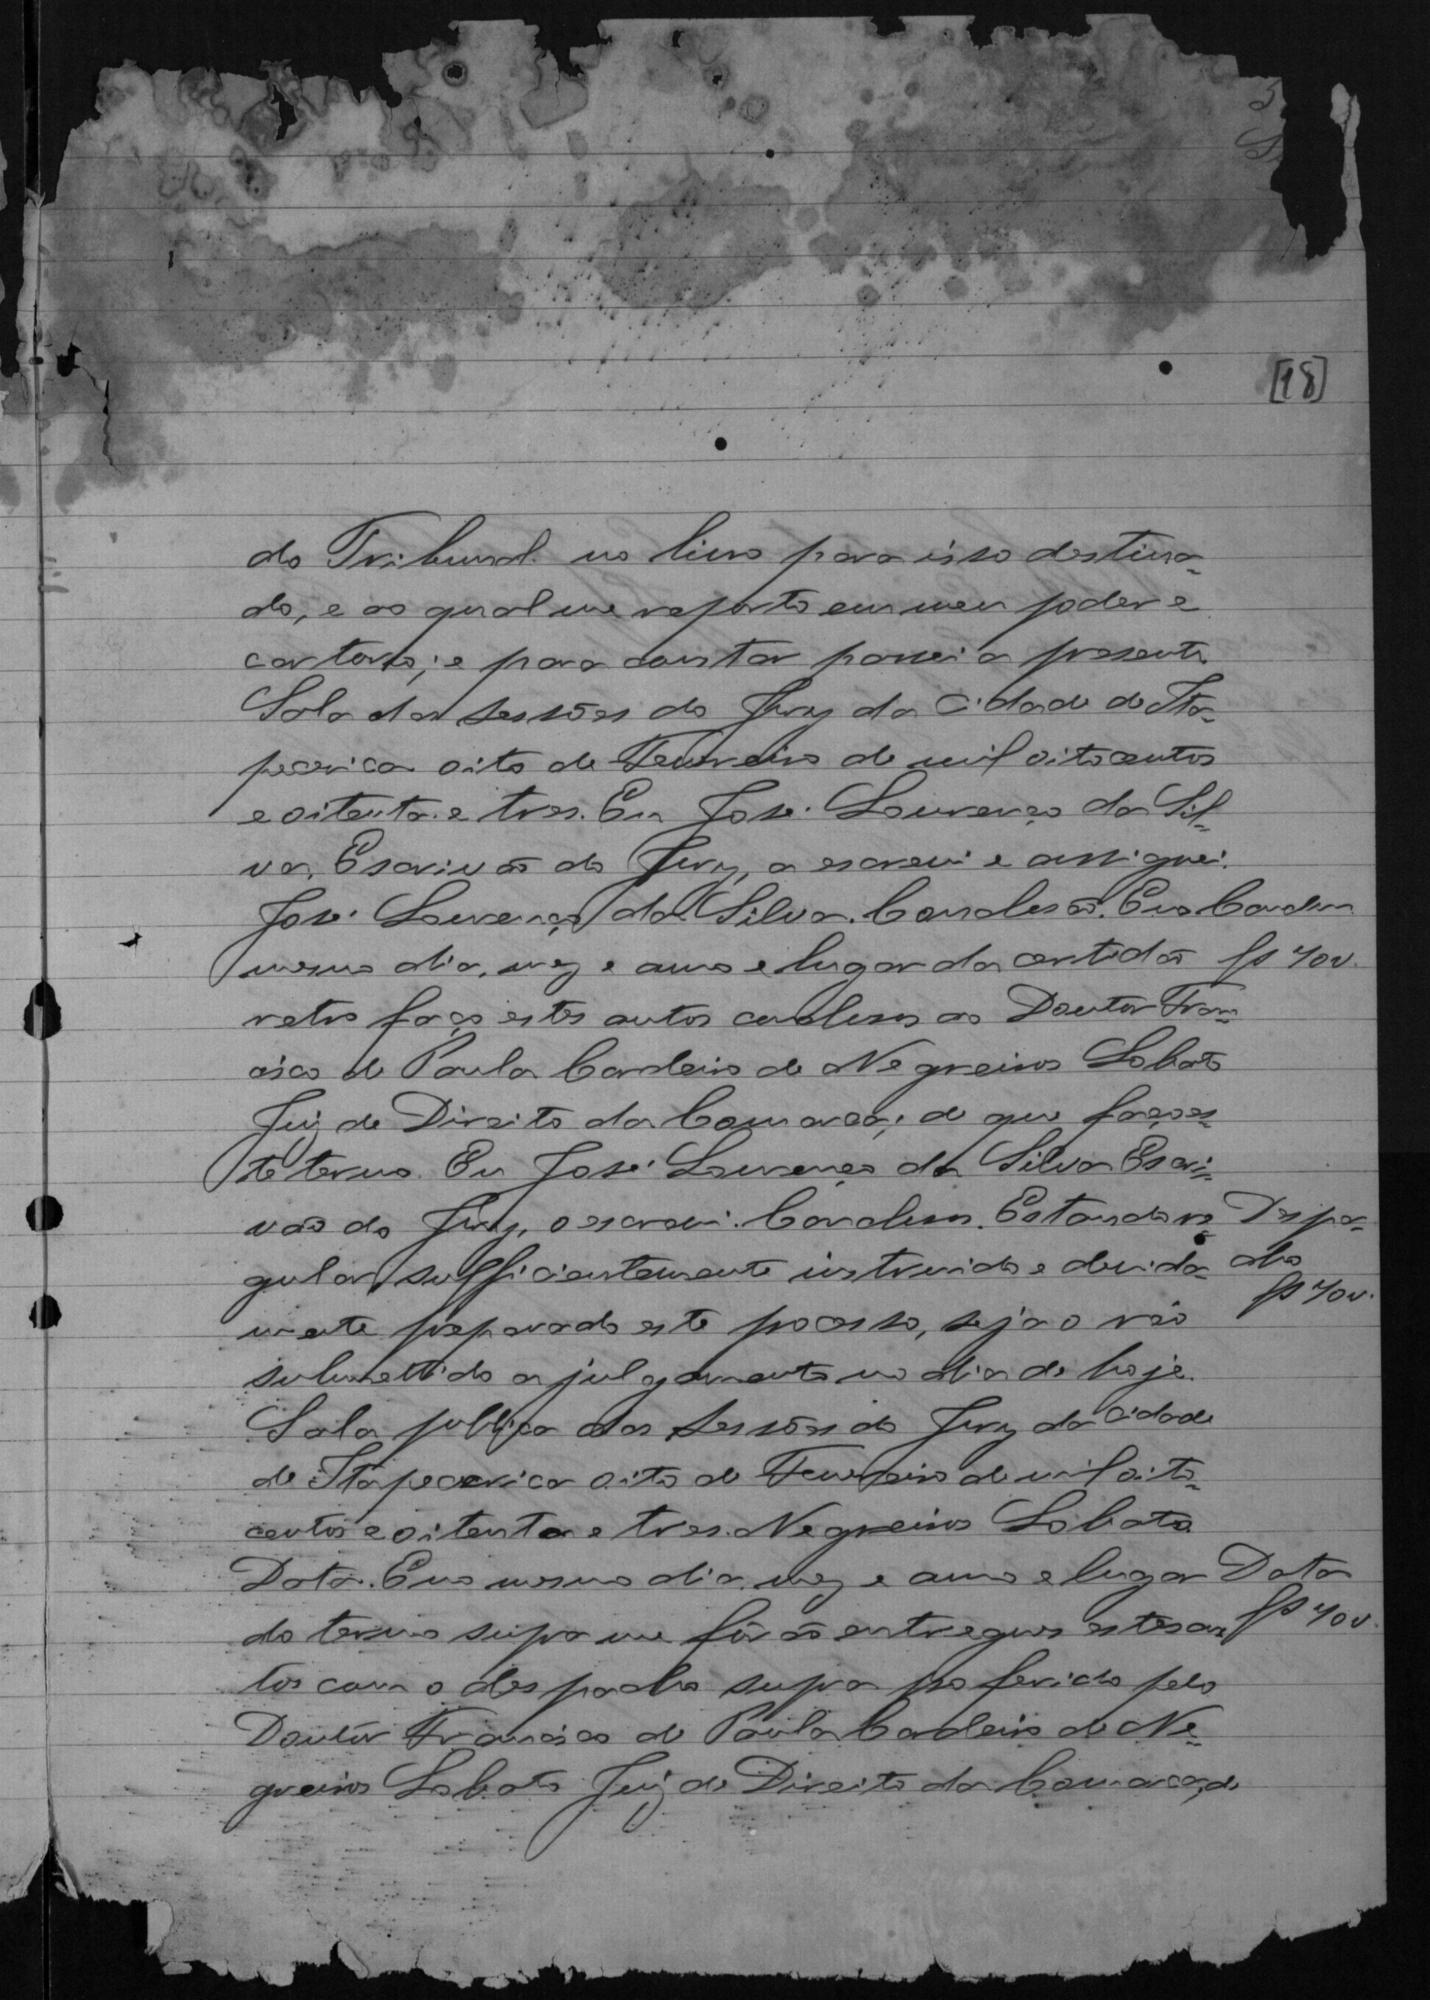 [18]
do Tribunal no livro para isso destina-
do, e ao qual me reporto em meu poder e
cartorio; e para constar passei a presente
Sala das sessões do Jury da Cidade de Ita-
pecerica oito de Fevereiro de mil oitocentos
e oitenta e tres. Eu José Lourenço da Sil-
va, Escrivão do Jury, a escrevi e assignei.
José Lourenço da Silva. Conclusão. E no Conclusam
mesmo dia, mez e anno e lugar da certidão fs 40v.
retro faço estes autos conclusos ao Doutor Fran-
cisco de Paula Cordeiro de Negreiros Lobato
Juiz de Direito da Comarca; do que faço es-
te termo. Eu José Lourenço da Silva Escri-
vão do Jury, o escrevi. Conclusos. Estando re- Despa-
gular, sufficientemente instruido e devida- cho
fs 40v.
mente preparado este processo, seja o réo
submettido a julgamento no dia de hoje.
Sala publica das sessões do Jury da Cidade
de Itapecerica oito de Fevereiro de mil oito-
centos e oitenta e tres. Negreiros Lobato
Data. E no mesmo dia, mez e anno e lugar Data
do termo supra me forão entregues estes au- fs 40v.
tos com o despacho supra proferido pelo
Doutor Francisco de Paula Cordeiro de Ne-
greiros Lobato Juiz de Direito da Comarca, do